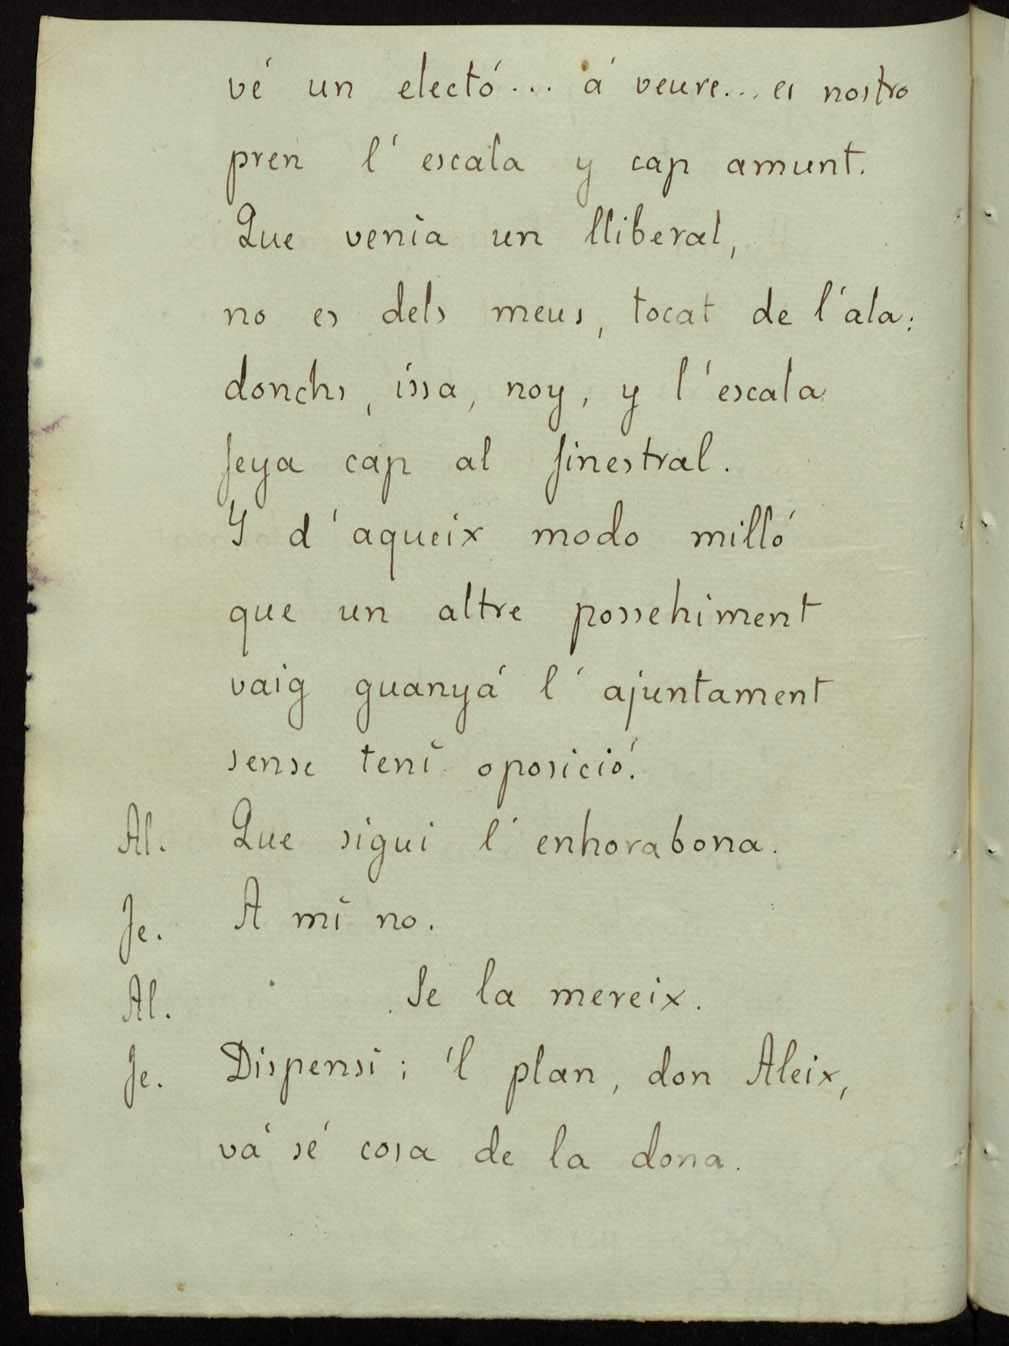 vé un electó... á veure... es nostro
pren l' escala y cap amunt.
Que venia un lliberal,
no es dels meus, tocat de l'ala;
donchs, issa, noy, y l'escala
feya cap al finestral.
Y d'aqueix modo milló
que un altre possehiment
vaig guanyá l' ajuntament
sense tení oposició.
Al. Que sigui l' enhorabona.
Je. A mí no.
Al. Se la mereix.
Je. Dispensi; 'l plan, don Aleix,
vá sé cosa de la dona.